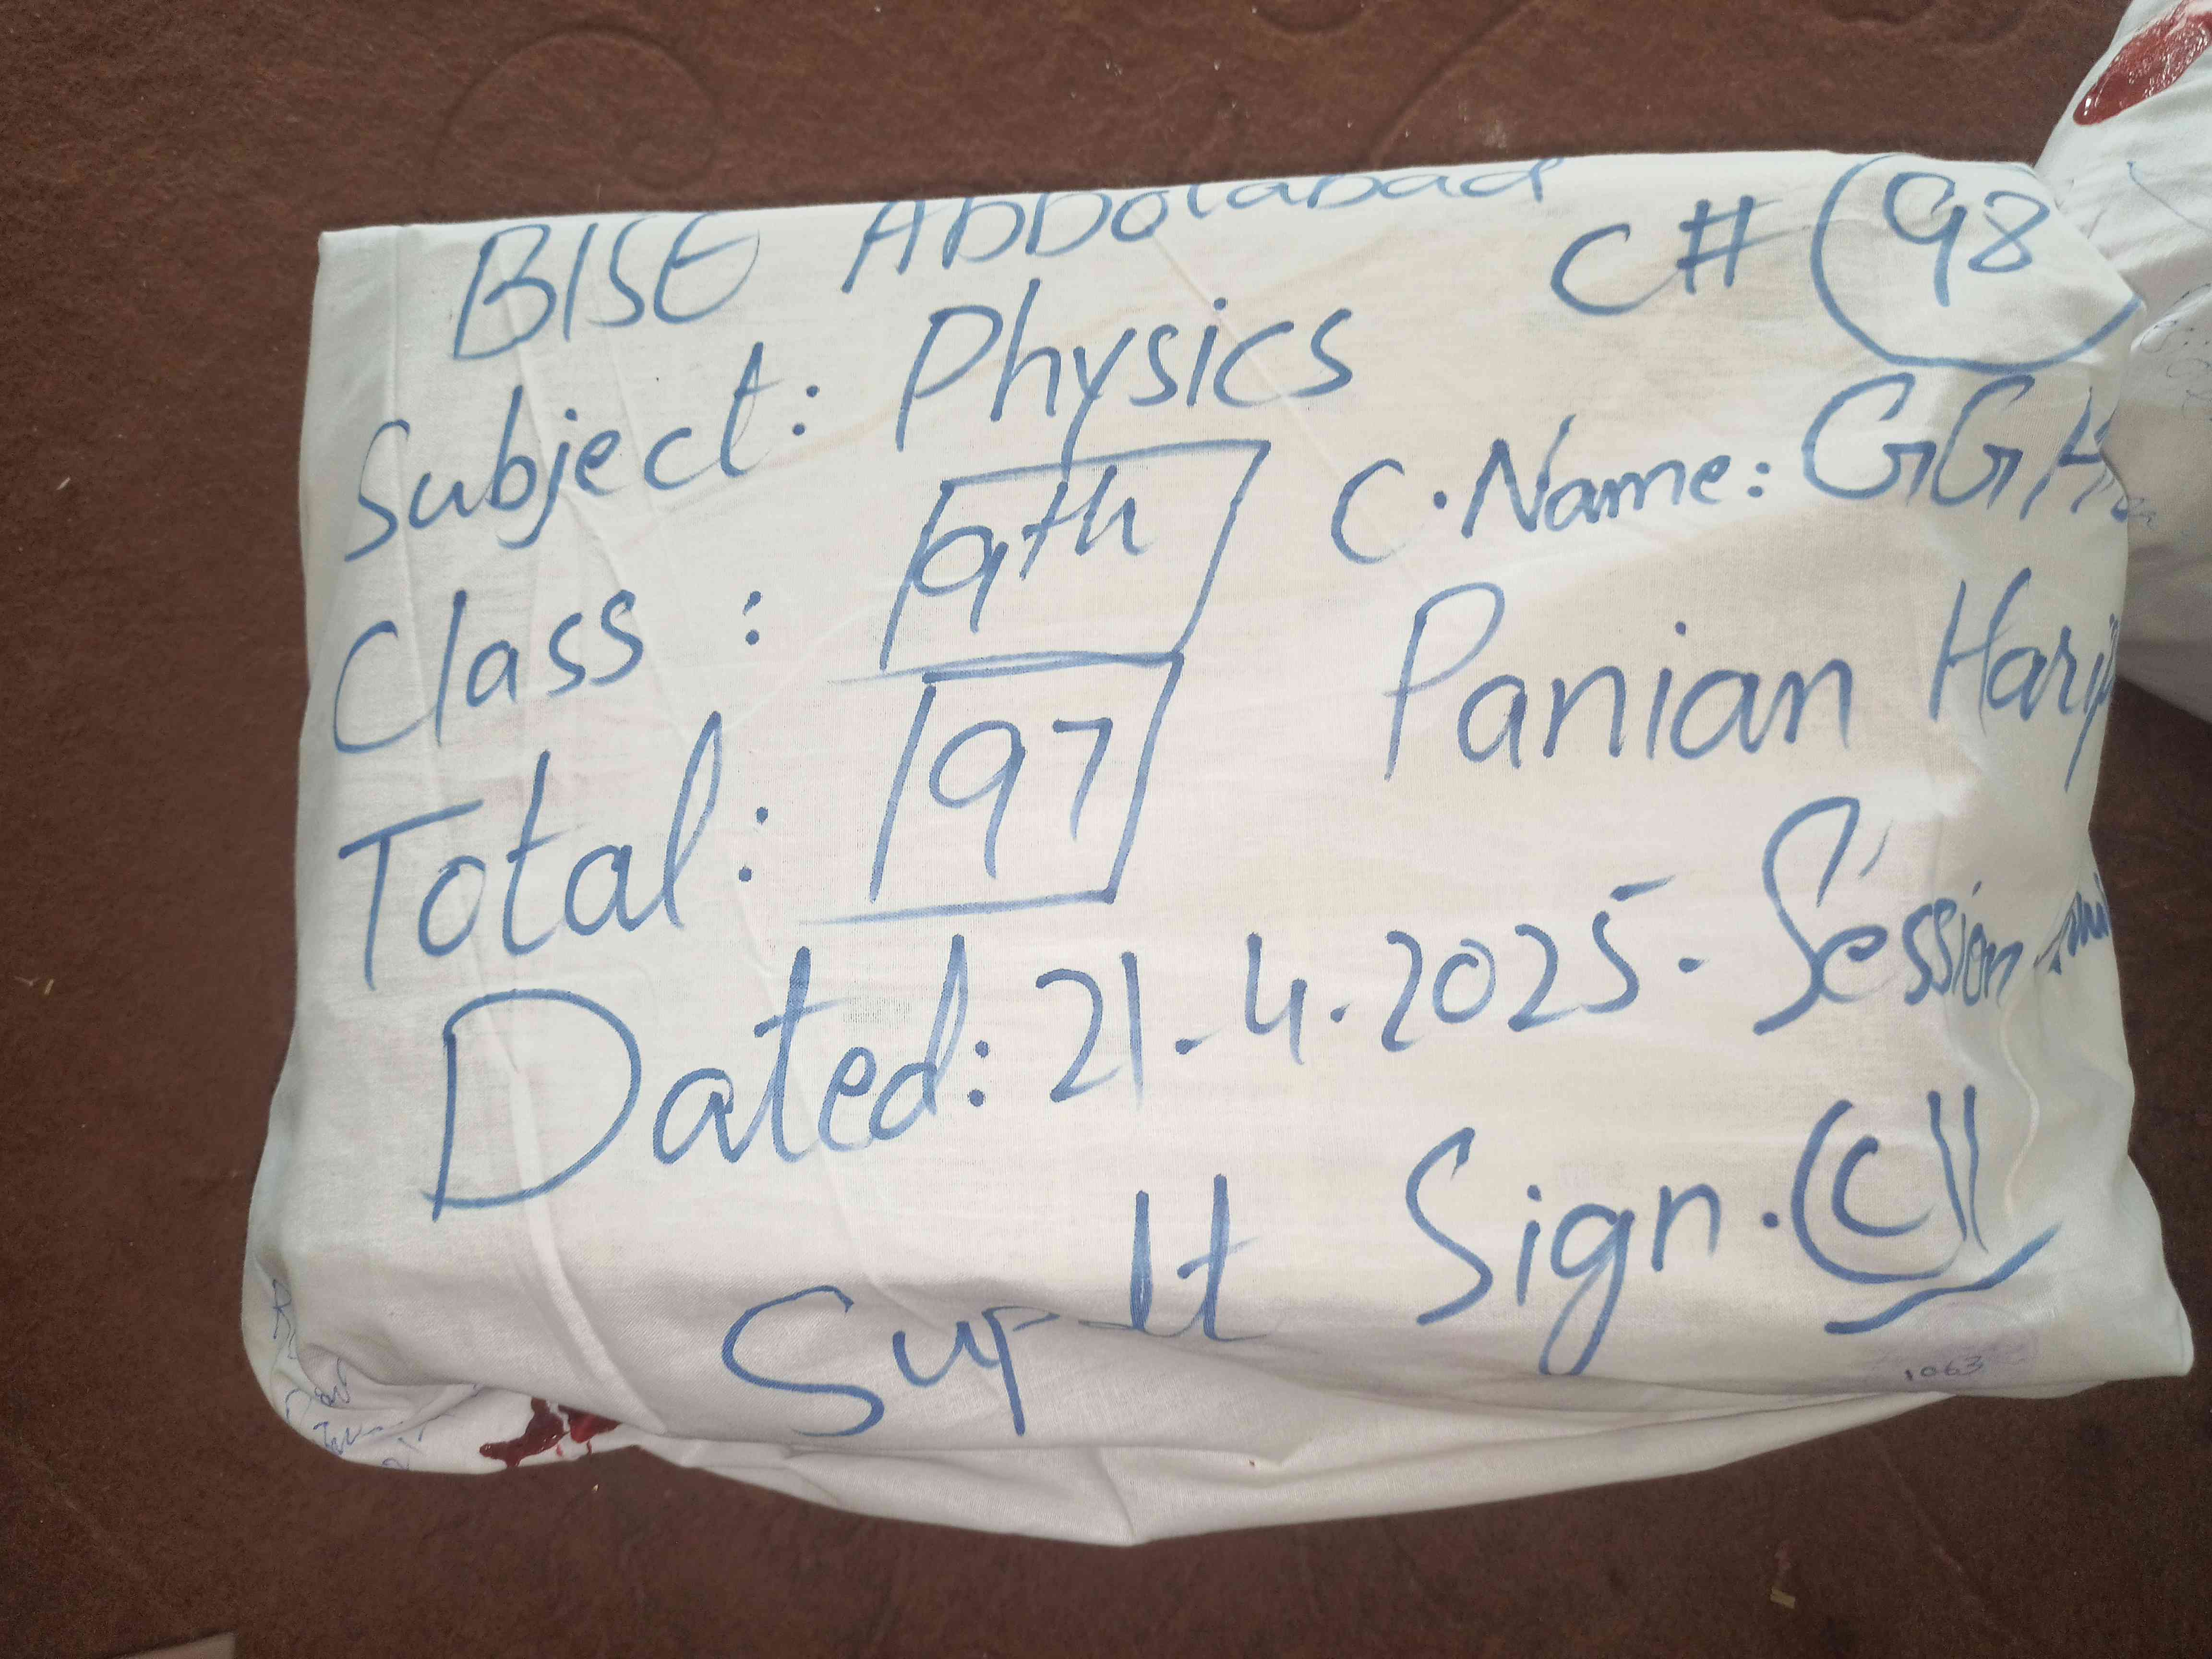 BISE Abbotabad
C# 98
Subject: Physics
Class : 9th
C.Name: GGH
Total: 97
Panian Hari
Dated: 21.4.2025. Session
Supdt Sign.
1063